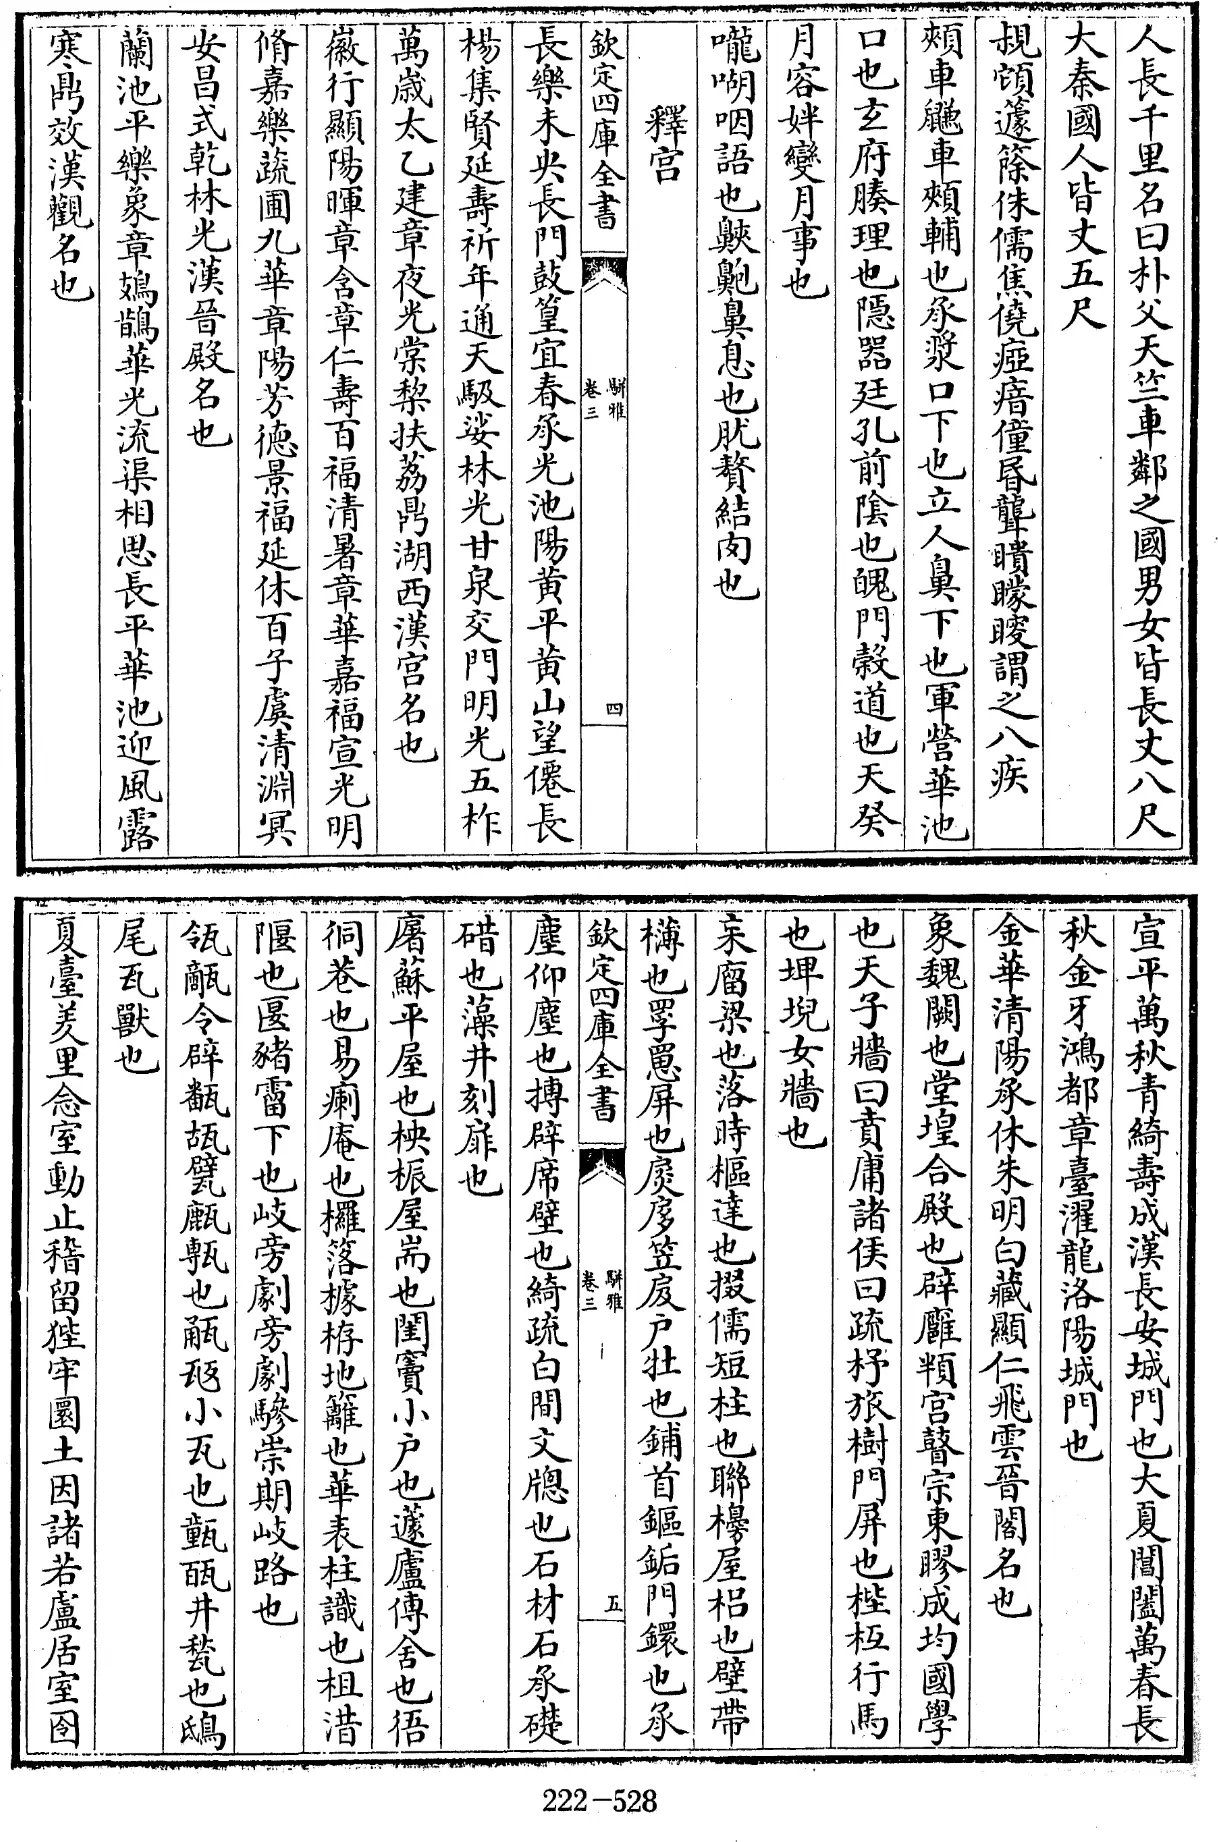 人長千里名曰朴父天竺車鄰之國男女皆長丈八尺
大秦國人皆丈五尺
覝頎籧篨侏儒焦僥瘂瘖僮昬聾聵矇瞍謂之八疾
頰車鼸車頰輔也承漿口下也立人鼻下也軍營華池
口也玄府腠理也隱器廷孔前陰也魄門榖道也天癸
月容姅變月事也
嚨𠴱咽語也齅鼻息也肬贅結肉也
釋宫
欽定四庫全書
駢雅
卷三
四
長樂未央長門鼓篁宜春承光池陽黄平黄山望僊長
楊集賢延壽祈年通天馺娑林光甘泉交門明光五柞
萬嵗太乙建章夜光棠棃扶荔鼎湖西漢宫名也
徽行顯陽暉章含章仁壽百福清暑章華嘉福宣光明
脩嘉樂蔬圃九華章陽芳徳景福延休百子虞清淵冥
安昌式乾林光漢晉殿名也
蘭池平樂象章鳷鵲華光流渠相思長平華池迎風露
寒鼎效漢觀名也
宣平萬秋青綺壽成漢長安城門也大夏閶闔萬春長
秋金牙鴻都章臺濯龍洛陽城門也
金華清陽承休朱明白藏顯仁飛雲晉閣名也
象魏闕也堂堭合殿也辟廱頖宫瞽宗東膠成均國學
也天子牆曰賁庸諸侯曰疏杼旅樹門屏也梐枑行馬
也埤堄女牆也
杗廇梁也落時樞達也掇儒短柱也聯櫋屋梠也壁帶
欂也罦罳屏也扊扅笠扂戸牡也鋪首鏂銗門鐶也承
欽定四庫全書
駢雅
卷三
五
塵仰塵也搏辟席壁也綺疏白間文牎也石材石承礎
碏也藻井刻扉也
㢝蘇平屋也柍桭屋耑也閨竇小戸也蘧廬傳舍也㣚
衕巷也易㾐庵也欏落據栫地籬也華表柱識也柤㳻
隁也匽豬霤下也岐旁劇旁劇驂崇期岐路也
瓴甋令辟㽃㼋甓㼾甎也㼚㼟小瓦也㼿㼣井甃也鴟
尾瓦獸也
夏臺羑里念室動止稽留狴牢圜土因諸若盧居室囹
222-528